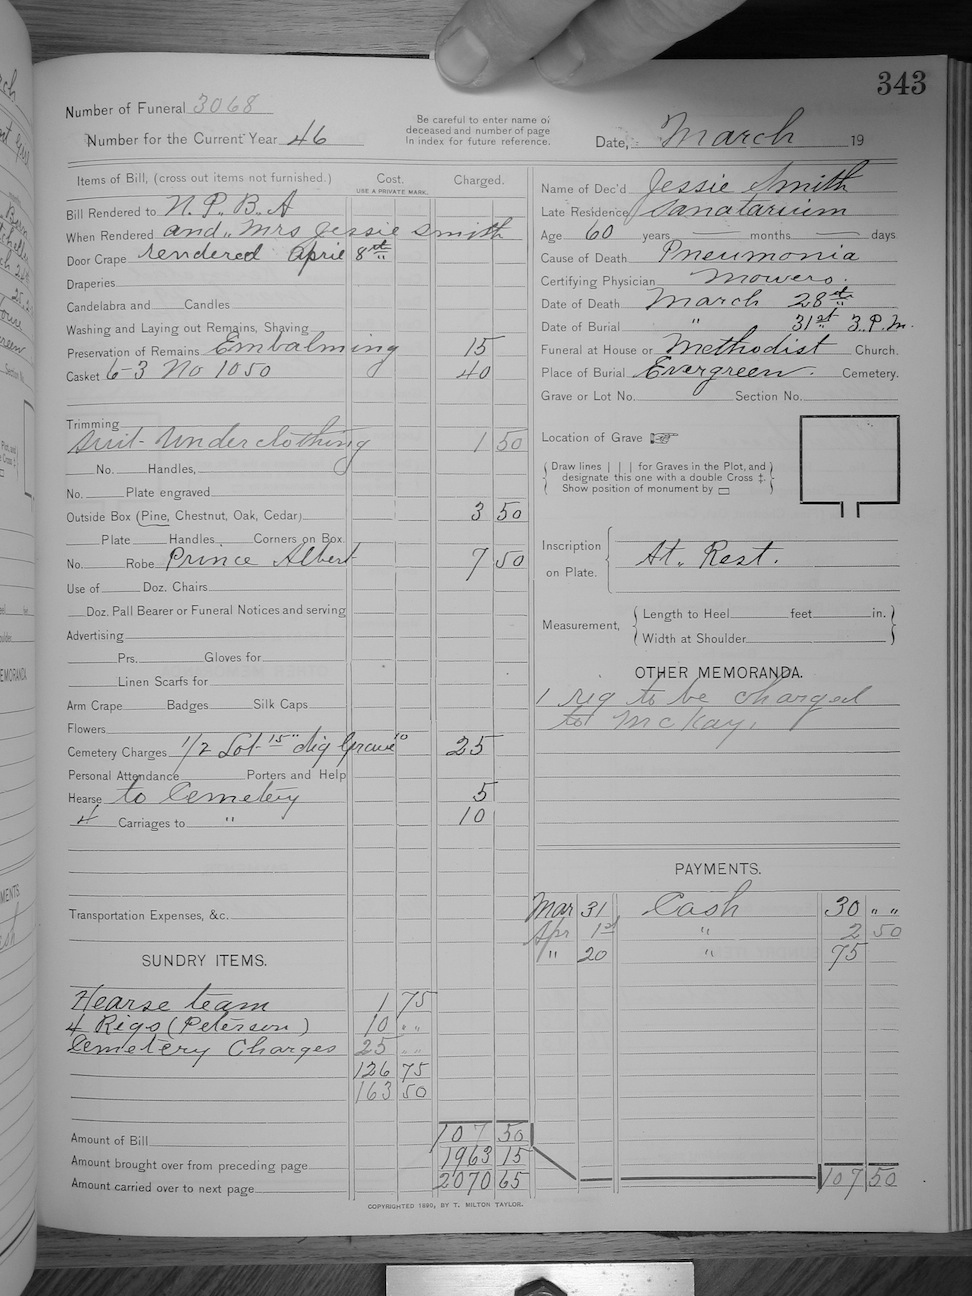 343
Number of Funeral 3068
Number for the Current Year 46
Be careful to enter name of
deceased and number of page
In index for future reference.
Date, March 19
Items of Bill, (cross out items not furnished.) Cost. Charged.
USE A PRIVATE MARK.
Bill Rendered to N. P. B. A
When Rendered and Mrs Jessie Smith
Door Crape rendered April 8
Draperies
Candelabra and Candles
Washing and Laying out Remains, Shaving
Preservation of Remains Embalming 15
Casket 6-3 No 1050 40
Trimming
Suit Underclothing 1 50
No. Handles,
No. Plate engraved
Outside Box (Pine, Chestnut, Oak, Cedar) 3 50
Plate Handles Corners on Box.
No. Robe Prince Albert 7 50
Use of Doz. Chairs
Doz. Pall Bearer or Funeral Notices and serving
Advertising
Prs. Gloves for
Linen Scarfs for
Arm Crape Badges Silk Caps
Flowers
Cemetery Charges 1/2 Lot 15 dig Grave 10 25
Personal Attendance Porters and Help
Hearse to Cemetery 5
4 Carriages to " 10
Transportation Expenses, &c.
SUNDRY ITEMS.
Hearse team 1 75
4 Rigs (Peterson) 10 " "
Cemetery Charges 25 " "
126 75
163 50
Amount of Bill 107 50
Amount brought over from preceding page 1963 15
Amount carried over to next page 2070 65
Name of Dec'd Jessie Smith
Late Residence Sanatarium
Age 60 years — months — days
Cause of Death Pneumonia
Certifying Physician Mowers.
Date of Death March 28
Date of Burial " 31st 3. P. M.
Funeral at House or Methodist Church.
Place of Burial Evergreen. Cemetery.
Grave or Lot No. Section No.
Location of Grave
Draw lines | | | for Graves in the Plot, and
designate this one with a double Cross ‡.
Show position of monument by ▭
Inscription
on Plate.
At. Rest.
Measurement,
Length to Heel feet in.
Width at Shoulder
OTHER MEMORANDA.
1 rig to be charged
to McKay.
PAYMENTS.
Mar 31 Cash 30 " "
Apr 1st " 2 50
" 20 " 75
107 50
COPYRIGHTED 1890, BY T. MILTON TAYLOR.